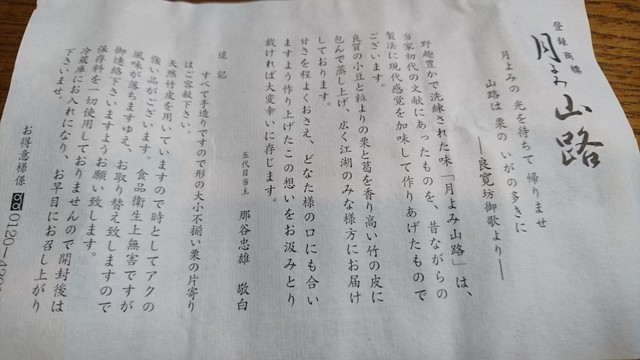 登録商標
月よみ山路
月よみの 光を待ちて 帰りませ
山路は 栗の いがの多きに
――良寛坊御歌より――
野趣豊かで洗練された味「月よみ山路」は、
当家初代の文献にあったものを、昔ながらの
製法に現代感覚を加味して作りあげたもので
ございます。
良質の小豆と粒よりの栗と葛を香り高い竹の皮に
包んで蒸し上げ、広く江湖のみな様方にお届け
しております。
甘さを程よくおさえ、どなた様の口にも合い
ますよう作り上げたこの想いをお汲みとり
戴ければ大変幸いに存じます。
五代目当主 那谷忠雄 敬白
追記
すべて手造りですので形の大小不揃い栗の片寄り
はご容赦下さい。
天然竹皮を用いていますので時としてアクの
強い品がございます。食品衛生上無害ですが
風味が落ちますゆえ、お取り替え致しますので
御連絡下さいますようお願い致します。
保存料を一切使用しておりませんので開封後は
冷蔵庫にお入れになり、お早目にお召し上がり
下さいませ。
お得意様係 0120―